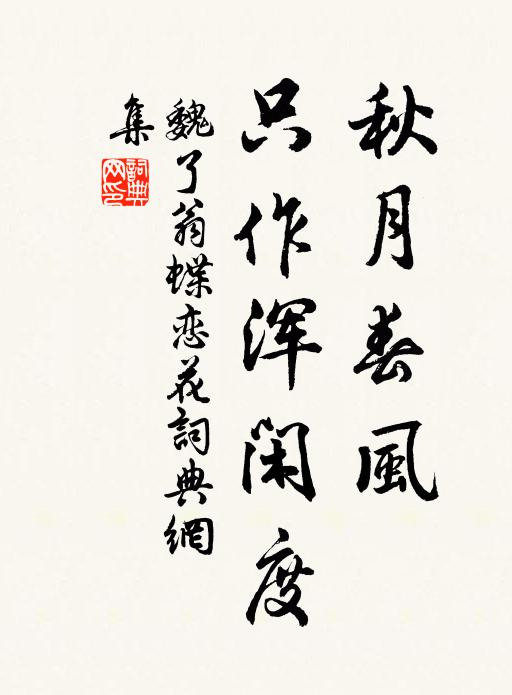 秋月春風
只作浑閑度
魏了翁蝶恋花詞典網
集
詞典网印